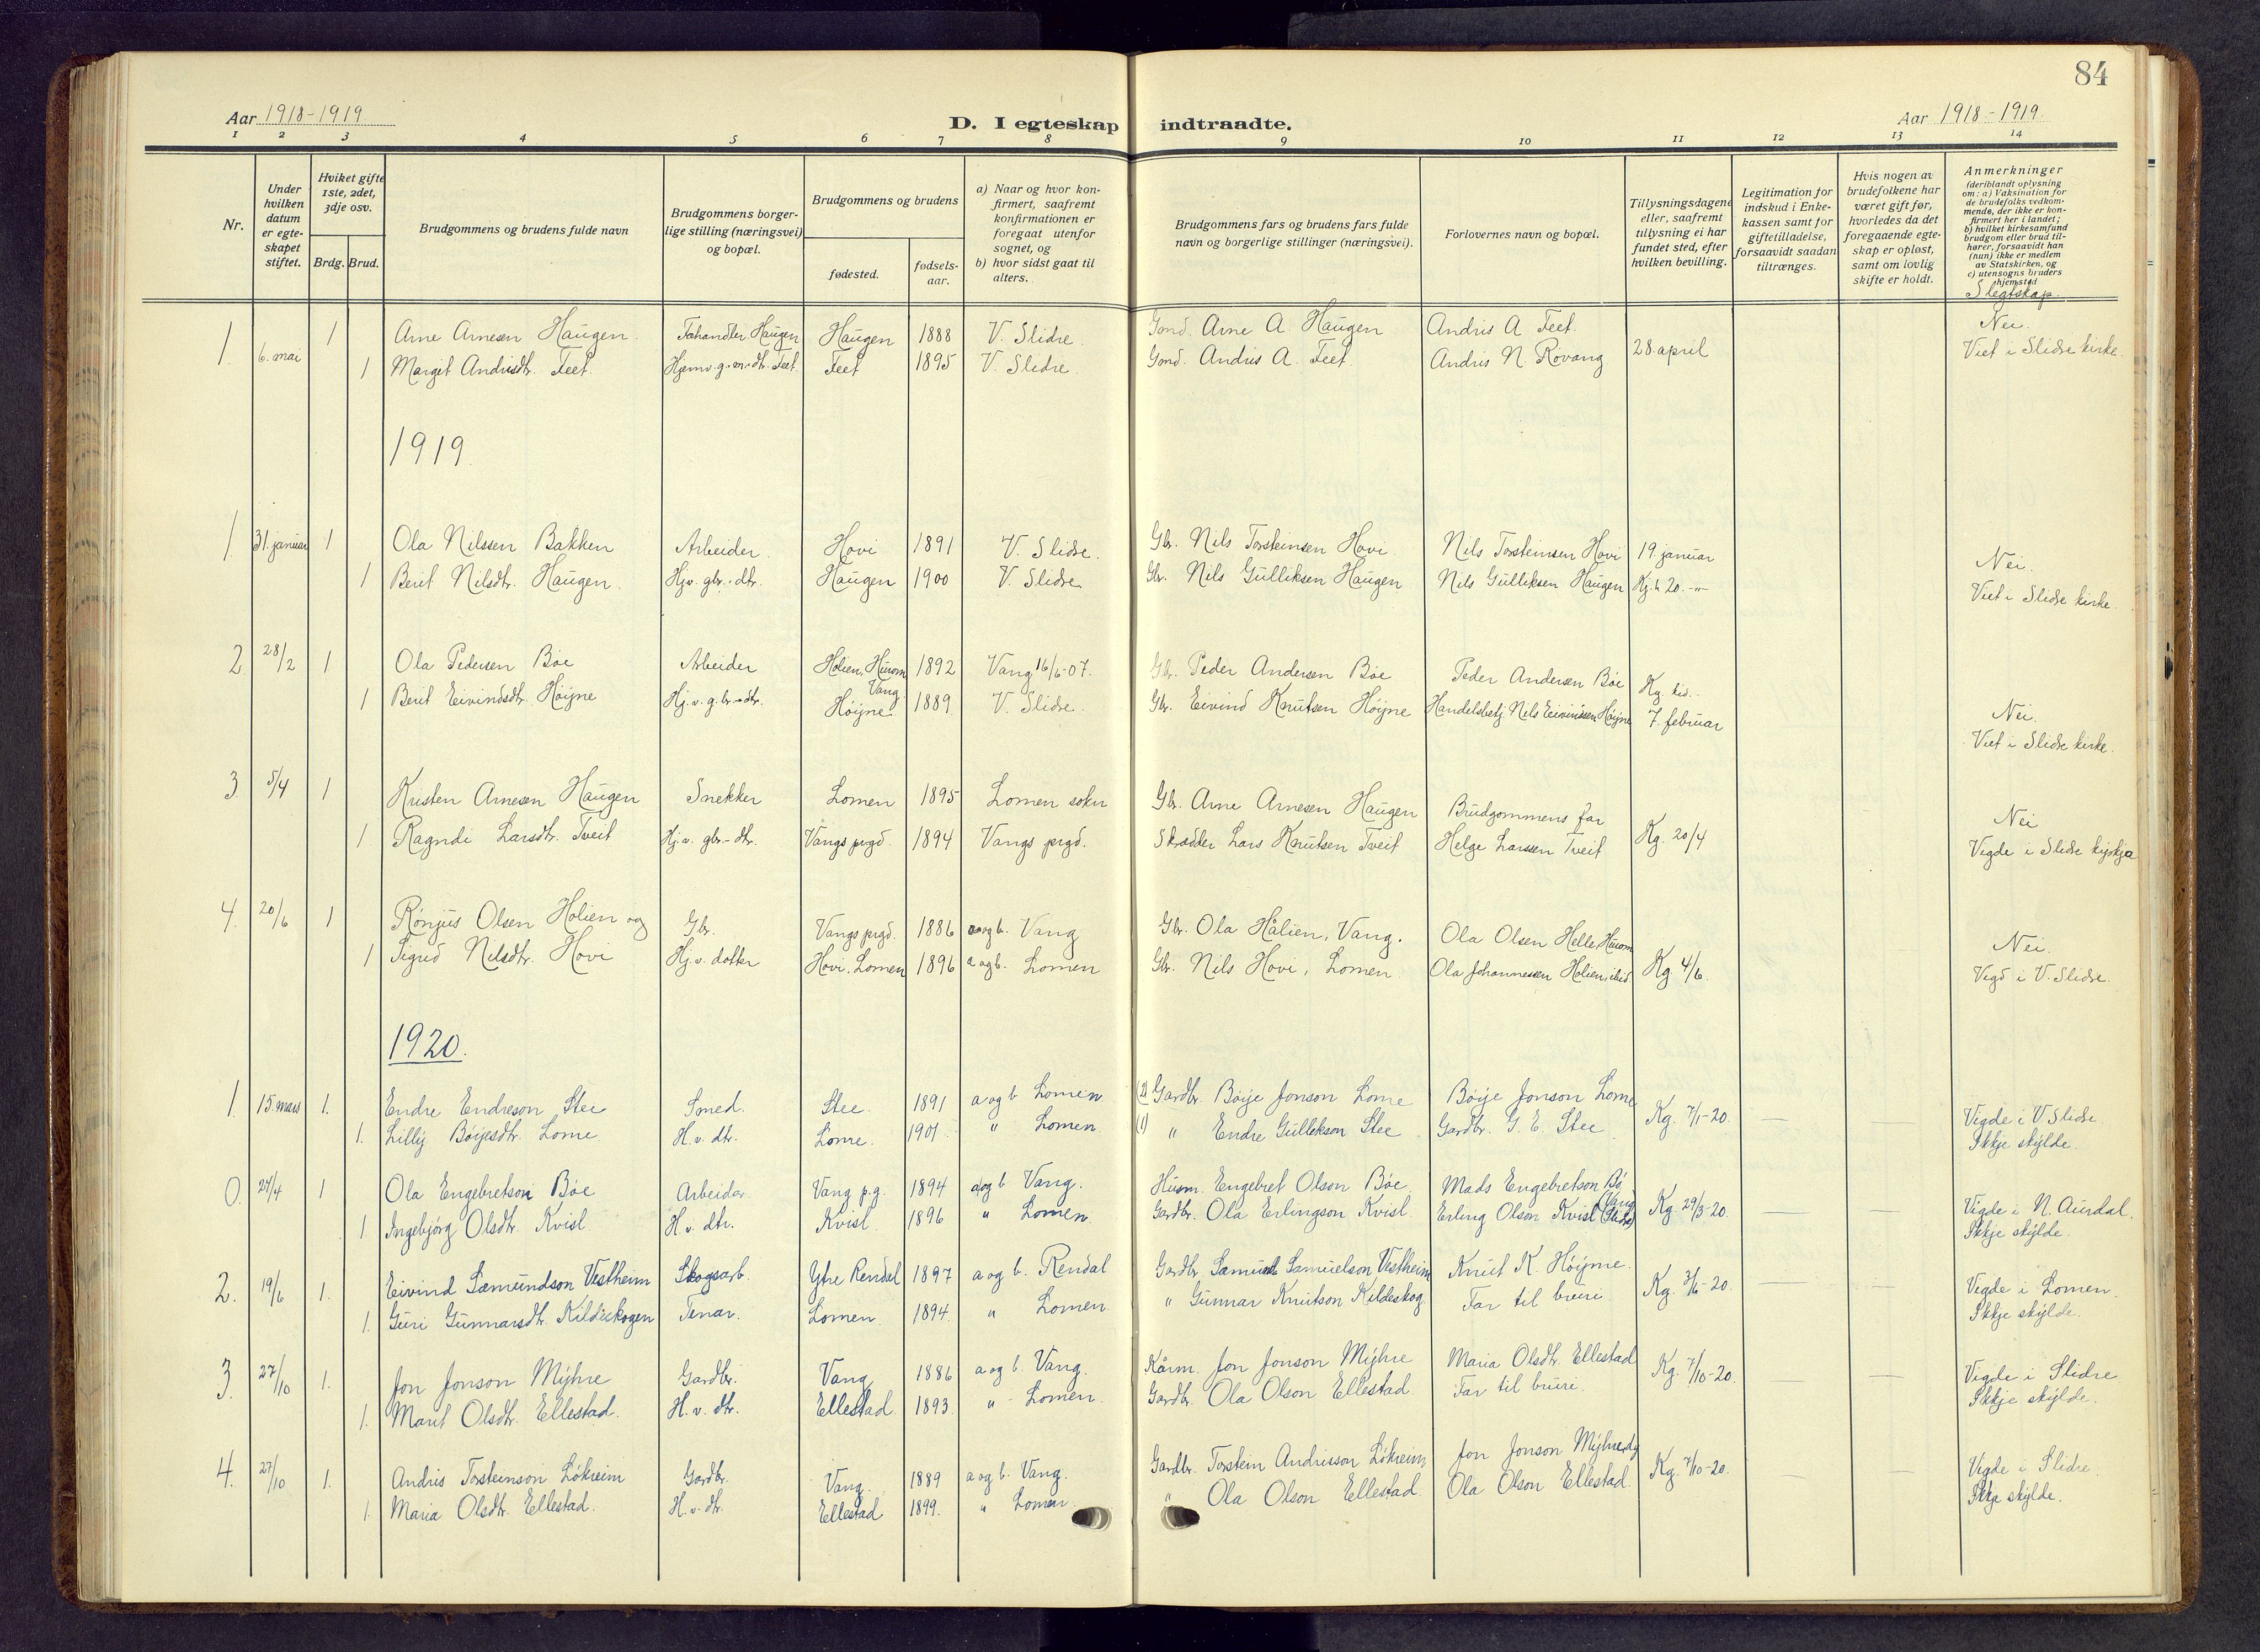 84
Aar 1918-1919
D. I egteskap indtraadte.
Aar 1918-1919.
1 2 3 4 5 6 7 8 9 10 11 12 13 14
Nr.
Under hvilken datum er egteskapet stiftet.
Hviket gifte 1ste, 2det, 3dje osv.
Brdg. Brud.
Brudgommens og brudens fulde navn
Brudgommens borgerlige stilling (næringsvei) og bopæl.
Brudgommens og brudens
fødested.
fødselsaar.
a) Naar og hvor konfirmert, saafremt konfirmationen er foregaat utenfor sognet, og
b) hvor sidst gaat til alters.
Brudgommens fars og brudens fars fulde navn og borgerlige stillinger (næringsvei).
Forlovernes navn og bopæl.
Tillysningsdagene eller, saafremt tillysning ei har fundet sted, efter hvilken bevilling.
Legitimation for indskud i Enkekassen samt for giftetilladelse, forsaavidt saadan tiltrænges.
Hvis nogen av brudefolkene har været gift før, hvorledes da det foregaaende egteskap er opløst, samt om lovlig skifte er holdt.
Anmerkninger
(deriblandt oplysning om: a) Vaksination for de brudefolks vedkommende, der ikke er konfirmert her i landet; b) hvilket kirkesamfund brudgom eller brud tilhører, forsaavidt han (hun) ikke er medlem av Statskirken, og c) utensogns bruders hjemsted
Slegtskap.
1. 6. mai 1 Arne Arnesen Haugen. Haugen Haugen 1888 V. Slidre. Gmd. Arne A. Haugen Andris A Feet. 28. april Nei.
1 Margit Andrisdtr. Feet. Feet. Feet 1895 V. Slidre. Gmd. Andris A. Feet. Andris N Rovang Viet i Slidre kirke.
1919
1 31. januar 1 Ola Nilssen Bakken Arbeider. Hovi 1891 V. Slidre. Gbr. Nils Torsteinsen Hovi Nils Torsteinsen Hovi 19. januar Nei.
1 Berit Nilsdtr. Haugen. Hjv. gbr.-dtr. Haugen 1900 V. Slidre Gbr. Nils Gulliksen Haugen Nils Gulliksen Haugen Viet i Slidre kirke.
2 28/2 1 Ola Pedersen Bøe Arbeider Holien, Hurom Vang 1892 Vang 16/6-07. Gbr. Peder Andersen Bøe Peder Andersen Bøe Kg. tid. Nei.
1 Berit Eivindsdtr. Høijne Hj. v. g.br.-dtr. Høijne 1889 V. Slidre. Gbr. Eivind Knutsen Høijne Handelsbetj. Nils Eivindsen Høijne 7. februar Viet i Slidre kirke.
3 5/4 1 Kristen Arnesen Haugen Snekker Lomen 1895 Lomen sokn Gbr. Arne Arnesen Haugen Brudgommens far Kg. 20/4 Nei
1 Ragndi Larsdtr. Tveit Hj.v. gbr.-dtr. Vangs prgd. 1894 Vangs prgd. Skrædder Lars Knutsen Tveit Helge Larssen Tveit Vigde i Slidre kyrkja
4. 20/6 1 Rønjus Olsen Holien og Gbr. Vangs prgd. 1886 a og b. Vang Gbr. Ola Hålien, Vang. Ola Olsen Helle, Hurom Kg 4/6. Nei.
1 Sigrid Nilsdtr. Hovi Hj.v. dotter Hovi, Lomen 1896 a og b. Lomen Gbr. Nils Hovi, Lomen Ola Johannessen Holien, ibid Vigd i V. Slidre.
1920.
1. 15. mars 1. Endre Endreson Stee Smed. Stee. 1891 a og b Lomen (2) Gardbr. Bøije Jonson Lome Bøije Jonson Lome Kg. 7/1-20. — Vigde i V. Slidre.
1. Lilly Bøijesdtr. Lome H. v. dtr. Lome. 1901 " Lomen (1) " Endre Gullekson Stee Gardbr. G. E. Stee Ikkje skylde.
0. 24/4 1 Ola Engebretson Bøe Arbeidar Vang p.g. 1894 a og b Vang. Husm. Engebret Olson Bøe. Mads Engebretson Bø (Vang Kg. 29/3-20. — — Vigde i N. Aurdal.
1 Ingebjørg Olsdtr. Kvisl H. v. dtr. Kvisl 1896 " Lomen Gardbr. Ola Erlingson Kvisl Erling Olson Kvisl (Slidre) Ikkje skylde.
2. 19/6 1. Eivind Samundson Vestheim Skogsarb. Ytre Rendal 1897 a og b. Rendal Gardbr. Samuelson Vestheim Knut K. Høijne. Kg. 3/6-20. — — Vigde i Lomen.
1. Guri Gunnarsdtr. Kildeskogen Tenar. Lomen. 1894. " Lomen. " Gunnar Knutson Kildeskog Far til bruri. Ikkje skylde.
3. 27/10 1. Jon Jonson Myhre Gardbr. Vang 1886 a og b. Vang. Kårm. Jon Jonson Myhre Maria Olsdtr. Ellestad Kg. 7/10-20. — — Vigde i Slidre
1. Marit Olsdtr. Ellestad. H. v. dtr. Ellestad 1893. " Lomen. Gardbr. Ola Olson Ellestad. Far til bruri. Ikkje skylde.
4. 27/10 1. Andris Torsteinson Løkreim Gardbr. Vang. 1889 a og b. Vang. Gardbr. Torstein Andrisson Løkreim Jon Jonson Myhre og Kg. 7/10-20. — — Vigde i Slidre.
1. Maria Olsdtr. Ellestad. H. v. dtr. Ellestad 1899. " Lomen. " Ola Olson Ellestad. Ola Olson Ellestad. Ikkje skylde.